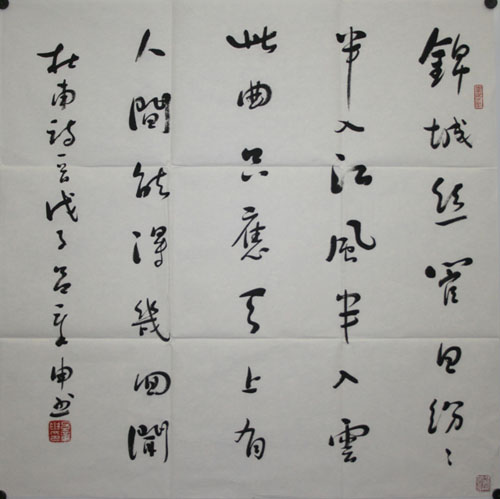 錦城丝管日紛々
半入江風半入雲
此曲只應天上有
人間能得幾回聞
杜甫詩一首戊子 書